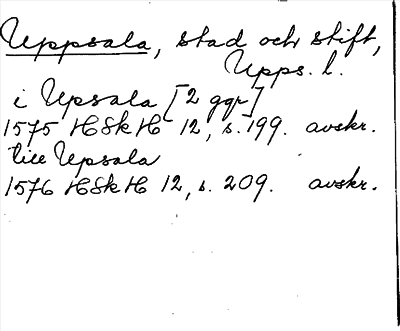 Uppsala, stad och stift,
Upps. l.
i Upsala [2 ggr]
1575 HSkH 12, s. 199. avskr.
till Upsala
1576 HSkH 12, s. 209. avskr.